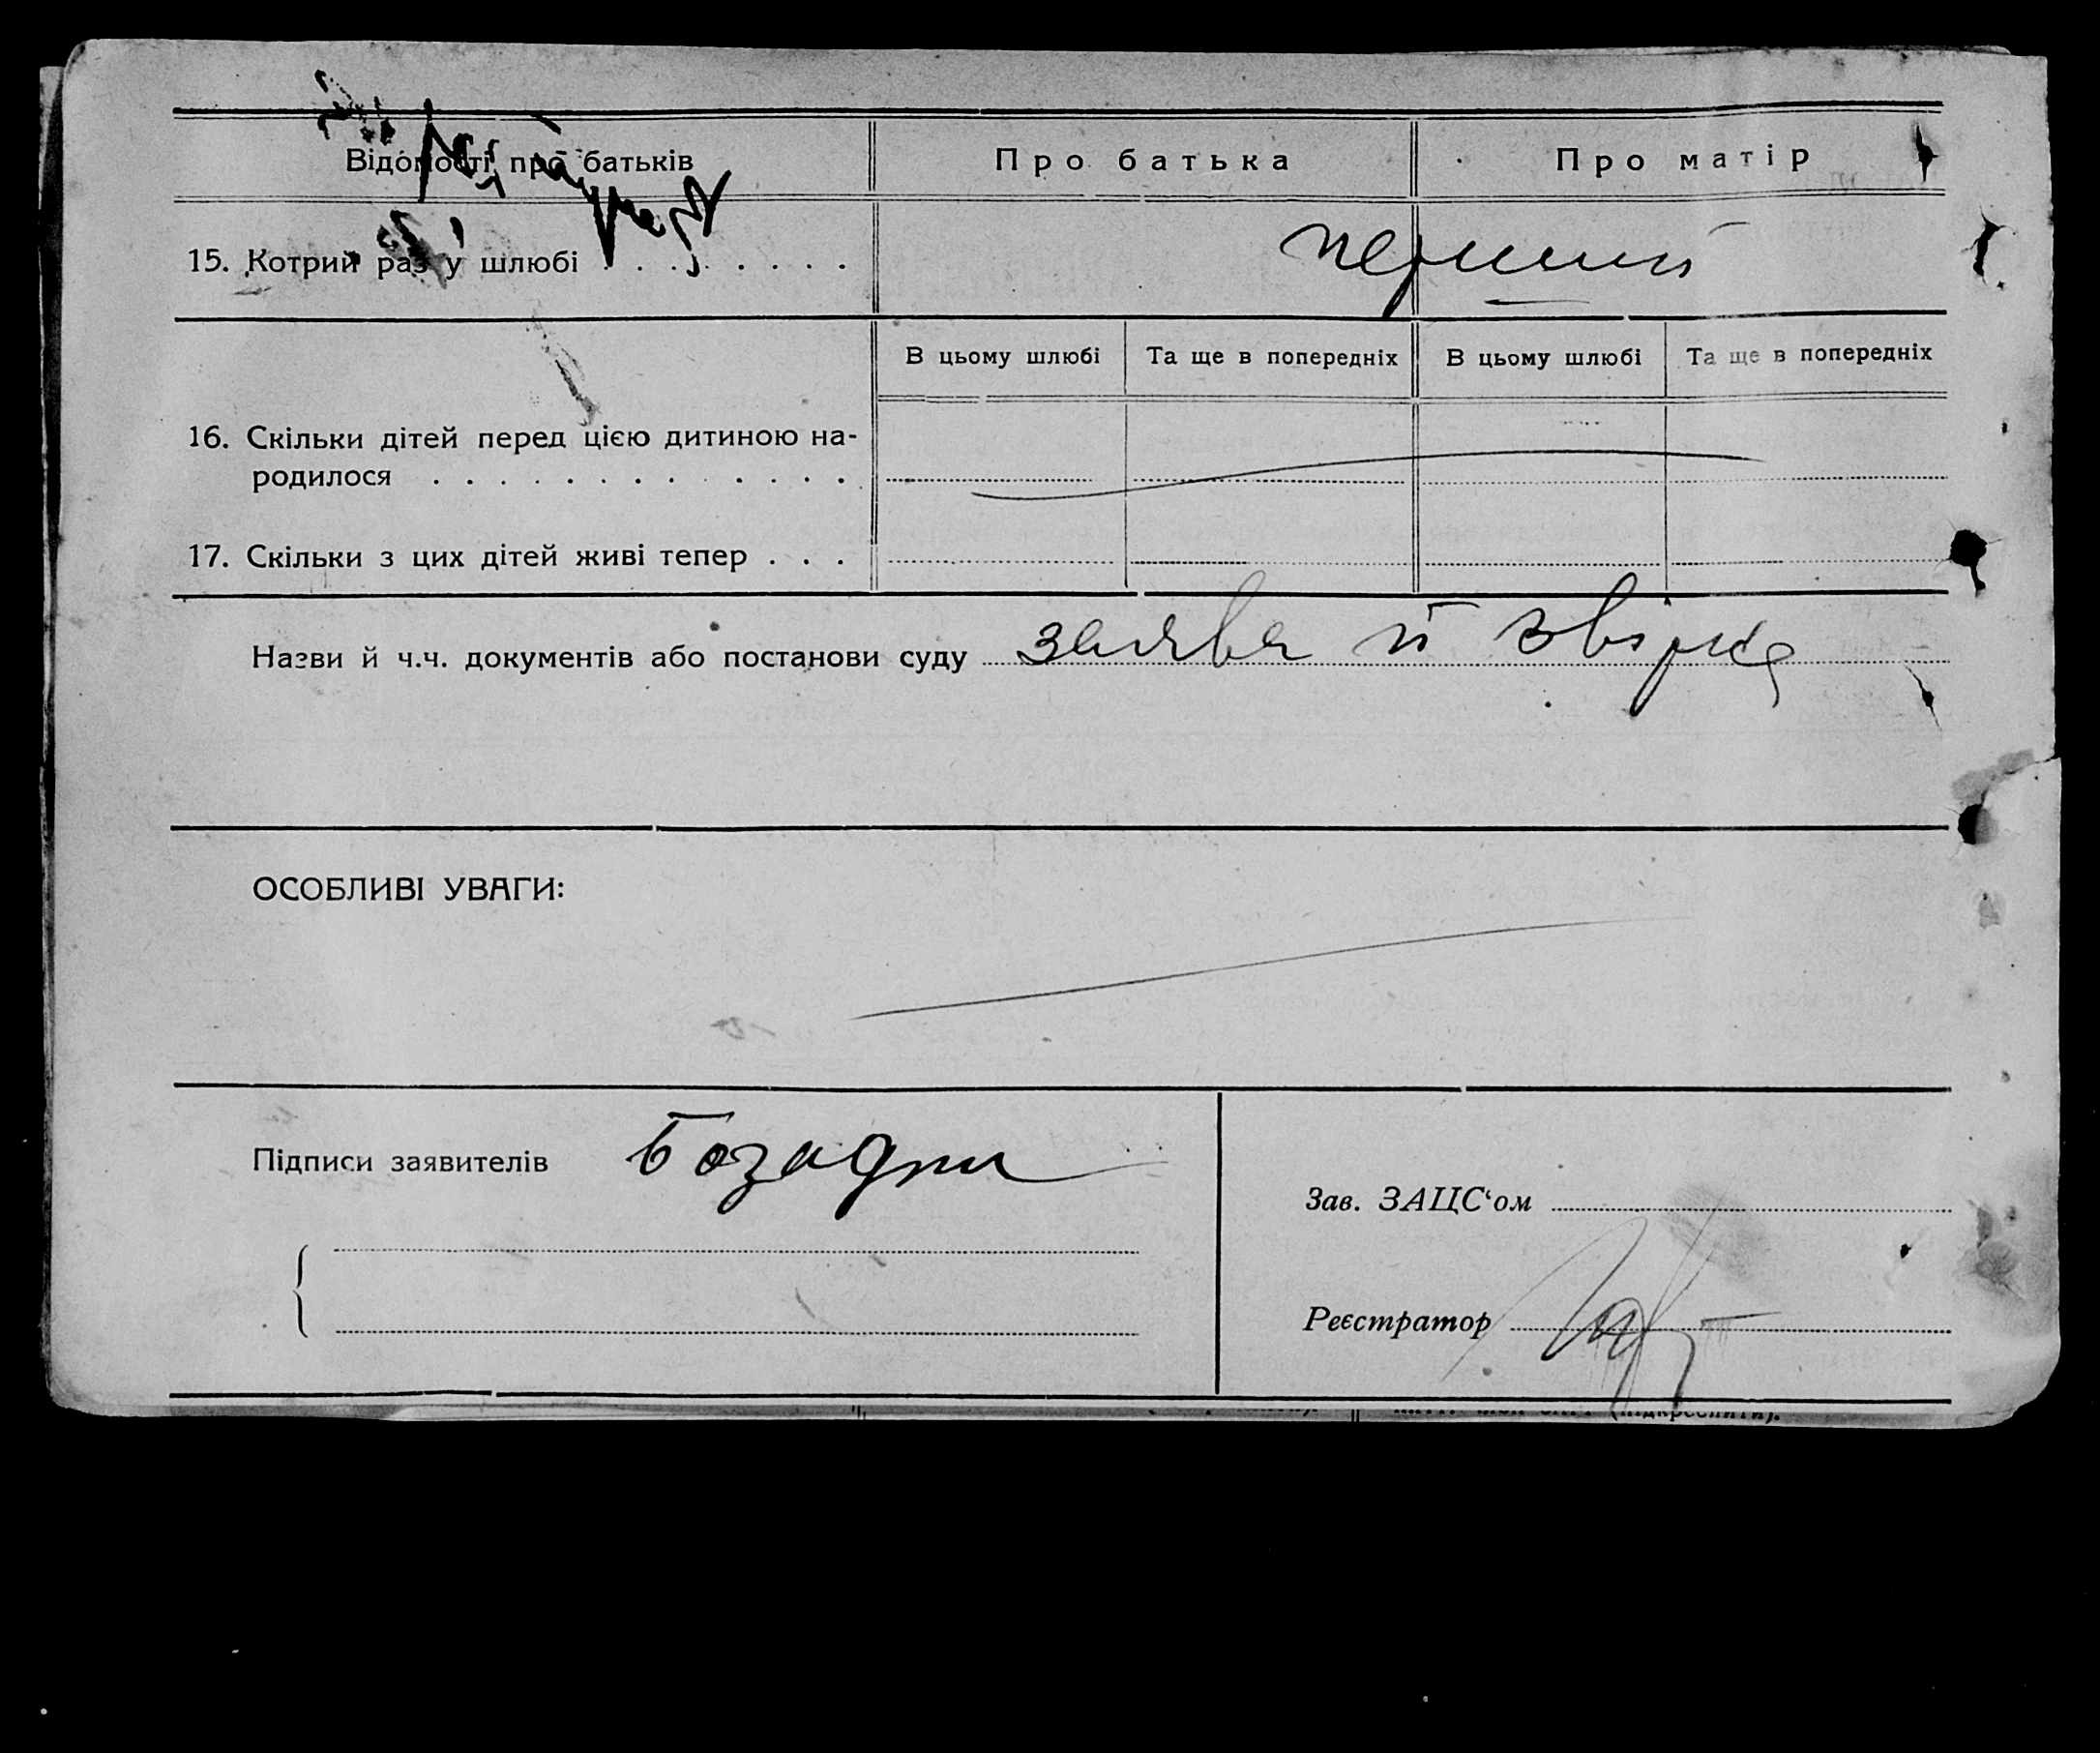 Відомості про батьків Про батька Про матір
15. Котрий раз у шлюбі . . . . . . . . перший
В цьому шлюбі Та ще в попередніх В цьому шлюбі Та ще в попередніх
16. Скільки дітей перед цією дитиною на-
родилося . . . . . . . . . . . . .
17. Скільки з цих дітей живі тепер . . .
Назви й ч.ч. документів або постанови суду заява й звірка
ОСОБЛИВІ УВАГИ:
Підписи заявителів
Зав. ЗАЦС‘ом
Реєстратор
(підкреслити).